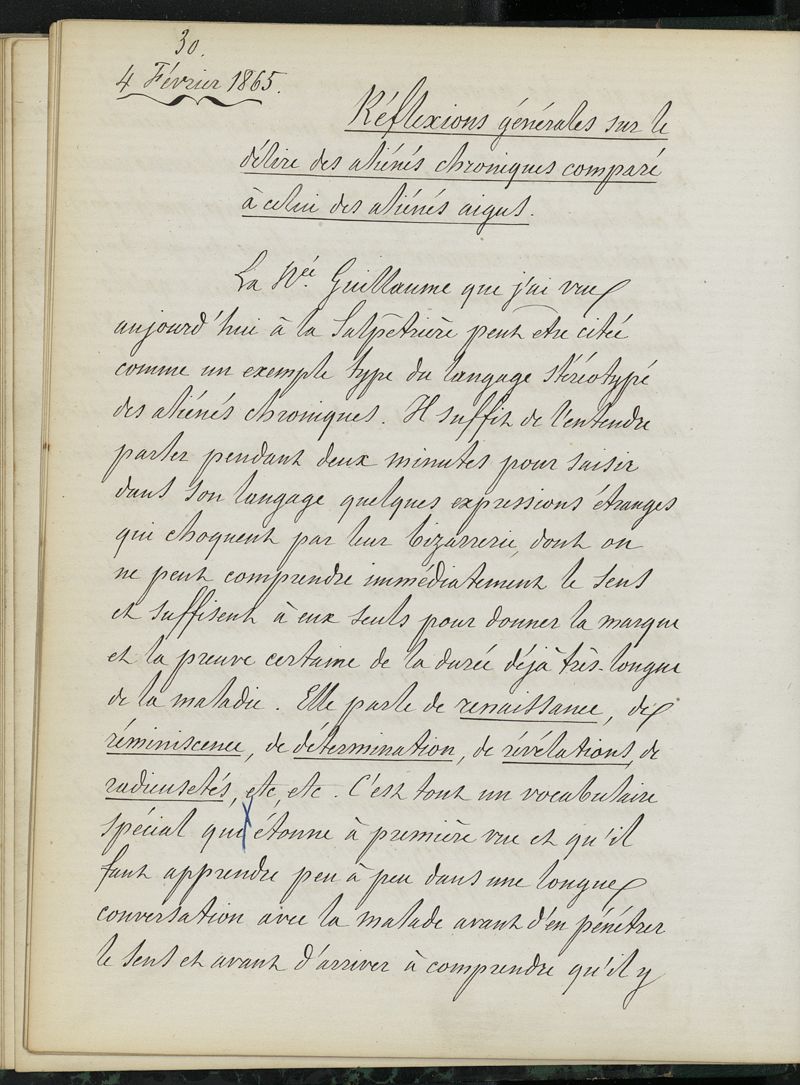 30.
4 Février 1865.
Réflexions générales sur le
délire des aliénés chroniques comparé
à celui des aliénés aigus.
La Née Guillaume que j'ai vue
aujourd'hui à la Salpêtrière peut être citée
comme un exemple type du langage stéréotypé
des aliénés chroniques. Il suffit de l'entendre
parler pendant deux minutes pour saisir
dans son langage quelques expressions étranges
qui choquent par leur bizarrerie, dont on
ne peut comprendre immédiatement le sens
et suffisent à eux seuls pour donner la marque
et la preuve certaine de la durée déjà très-longue
de la maladie. Elle parle de renaissance, de
réminiscence, de détermination, de révélations, de
radieusetés, etc, etc. C'est tout un vocabulaire
spécial qui étonne à première vue et qu'il
faut apprendre peu à peu dans une longue
conversation avec la malade avant d'en pénétrer
le sens et avant d'arriver à comprendre qu'il y